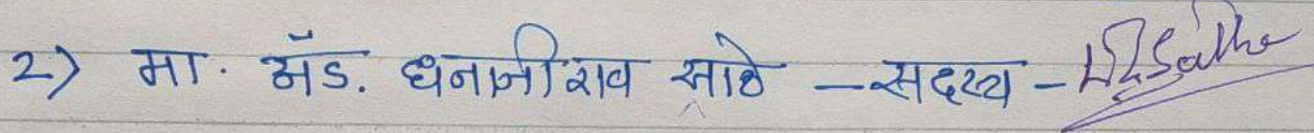 2) मा. ॲड. धनाजीराव साठे - सदस्य - DZSathe